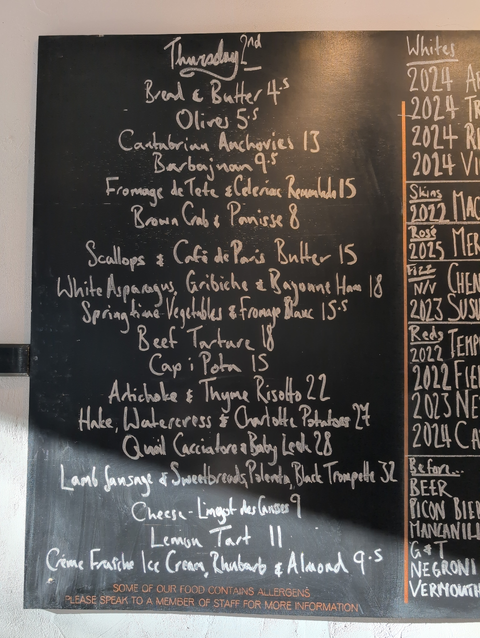 Thursday 2nd
Bread & Butter 4.5
Olives 5.5
Cantabrian Anchovies 13
Barbajuan 9.5
Fromage de Tete & Celeriac Remoulade 15
Brown Crab & Panisse 8
Scallops & Café de Paris Butter 15
White Asparagus, Gribiche & Bayonne Ham 18
Springtime Vegetables & Fromage Blanc 15.5
Beef Tartare 18
Cap i Pota 15
Artichoke & Thyme Risotto 22
Hake, Watercress & Charlotte Potatoes 27
Quail Cacciatore & Baby Leek 28
Lamb Sausage & Sweetbreads, Polenta, Black Trompette 32
Cheese - Lingot des Causses 9
Lemon Tart 11
Crème Fraiche Ice Cream, Rhubarb & Almond 9.5
SOME OF OUR FOOD CONTAINS ALLERGENS
PLEASE SPEAK TO A MEMBER OF STAFF FOR MORE INFORMATION
Whites
2024
2024
2024
2024
Skins
2022
Rosé
2025
Fizz
N/V
2023
Reds
2022
2022
2023
2024
Before...
BEER
PICON
G & T
NEGRONI
VERMOUTH